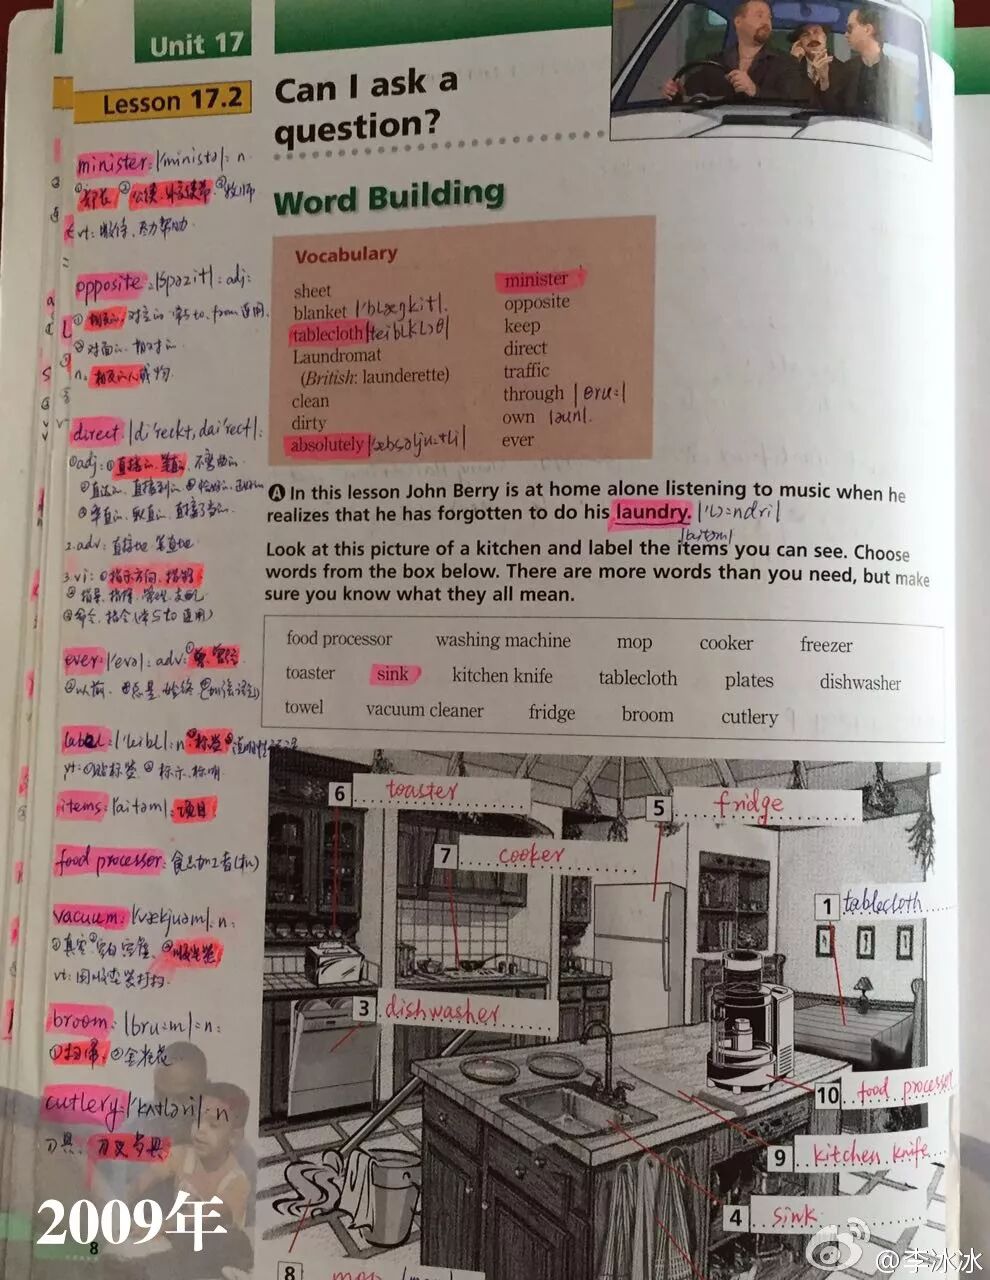 Unit 17
Lesson 17.2
Can I ask a
question?
Word Building
Vocabulary
sheet
blanket |'blæŋkit|.
tablecloth |teiblklɔθ|
Laundromat
(British: launderette)
clean
dirty
absolutely
minister
opposite
keep
direct
traffic
through |θru:|
own |əun|.
ever
A In this lesson John Berry is at home alone listening to music when he
realizes that he has forgotten to do his laundry. |'lɔ:ndri|
|aitəm|
Look at this picture of a kitchen and label the items you can see. Choose
words from the box below. There are more words than you need, but make
sure you know what they all mean.
food processor washing machine mop cooker freezer
toaster sink kitchen knife tablecloth plates dishwasher
towel vacuum cleaner fridge broom cutlery
6 toaster
5 fridge
7 cooker
1 tablecloth
3 dishwasher
10 food processor
9 kitchen knife
4 sink
8 mop
minister: |'ministə|: n.
①部长 ②公使、外交使节 ③牧师
vt: 服侍、尽力帮助
opposite: adj:
①相反的, 对立的 常与to, from 连用.
②对面的、相对的
n. 相反的人或物.
direct: |di'rekt, dai'rect|:
①adj: ①直接的、笔直的、不弯曲的
2. adv: 直接地 笔直地
3. vi: ①指示方向、指路
②指导、指挥、管理、支配
③命令、指令(常与to连用)
ever: |'evə|: adv:
②以前
label: |'leibl|: n. ①标签
vt: ①贴标签 ②标示、标明
items: |aitəm|: 项目
food processor: 食品加工者(机)
vacuum: |'vækjuəm|: n.
①真空 ③吸尘器
vt: 用吸尘器打扫.
broom: |bru:m|: n:
①扫帚, ②金雀花
cutlery: |'kʌtləri|: n
刀具. 刀叉餐具
2009年
8
@李冰冰